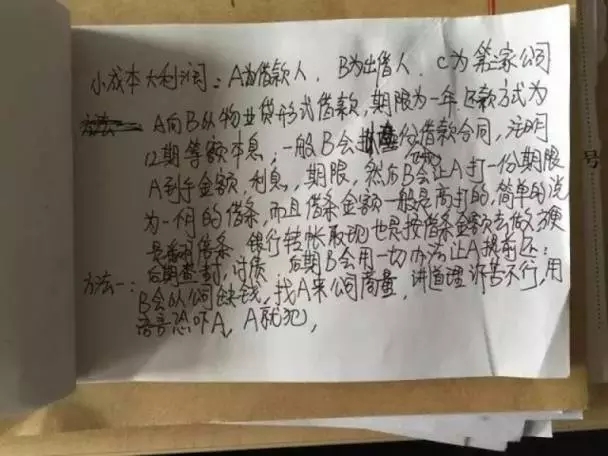 小成本大利润：A为借款人，B为出借人，C为第三家公司
A向B以物业贷形式借款，期限为一年还款方式为
12期等额本息，一般B会 份借款合同，注明
A到手金额，利息，期限，然后B会让A打一份期限
为一个月的借条，而且借条金额一般是高打的，简单的说
是 借条，银行转帐取现也是按借条金额去做，方便
后期查封，讨债 后期B会用一切办法让A提前还：
方法一：B会以公司缺钱，找A来公司商量，讲道理诉苦不行，用
语言恐吓A，A就犯，
号